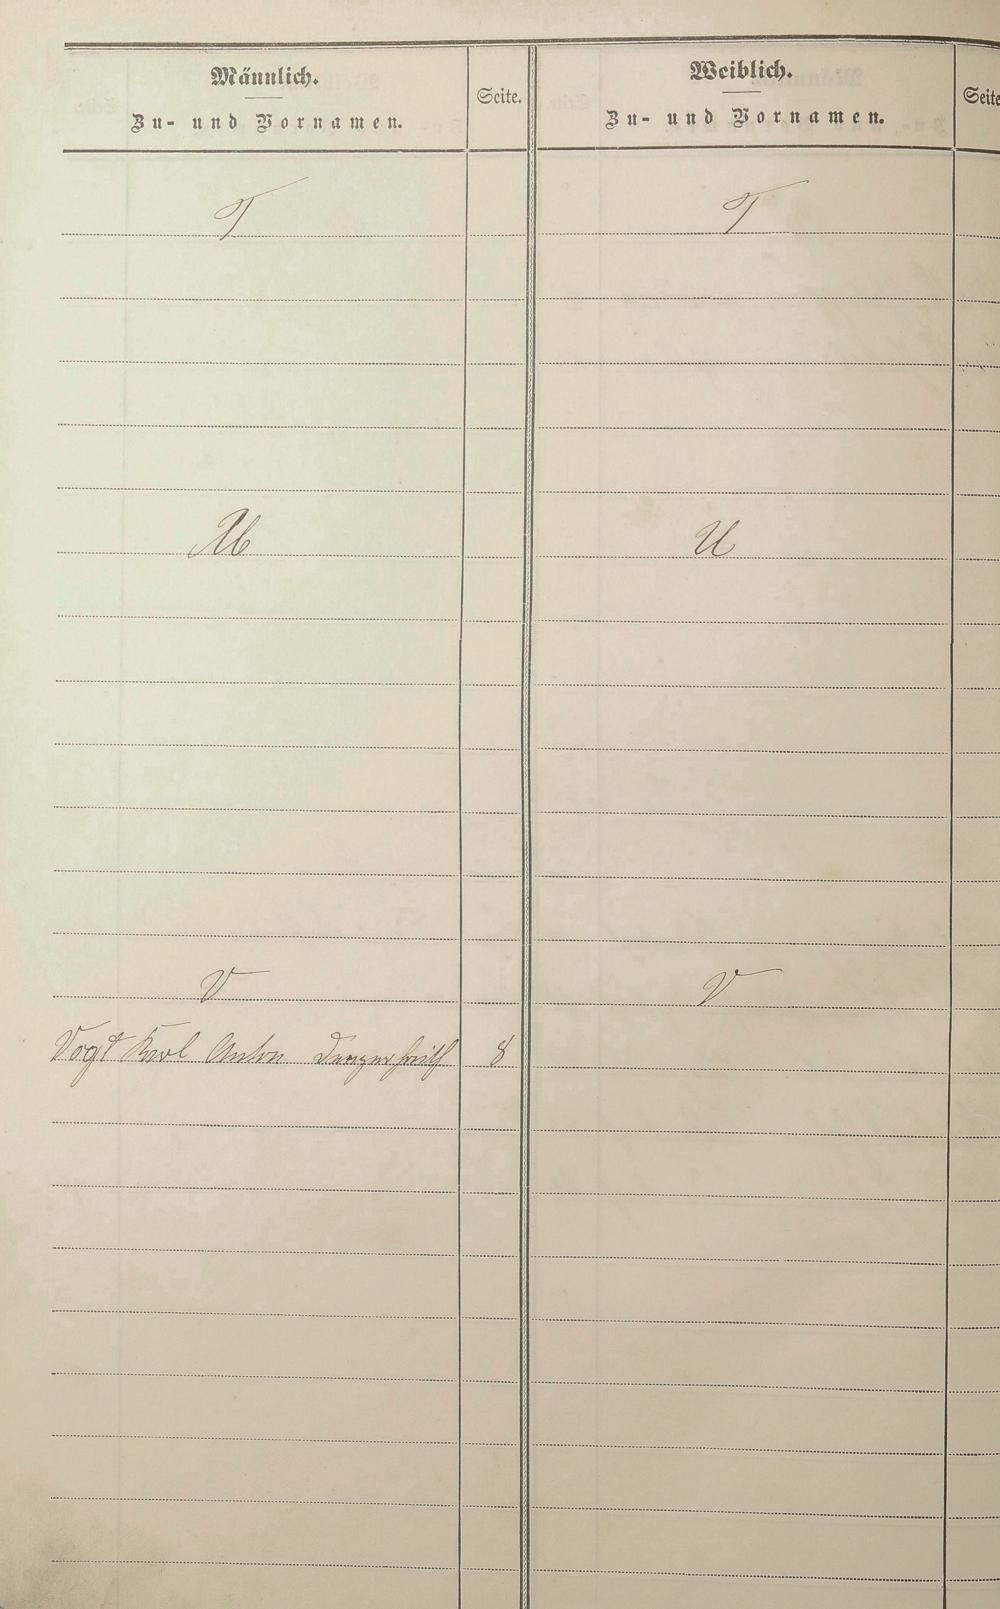 Männlich.
Zu- und Vornamen.
Seite.
Weiblich.
Zu- und Vornamen.
Seite
T T
U U
V V
Vogt Karl Anton 8